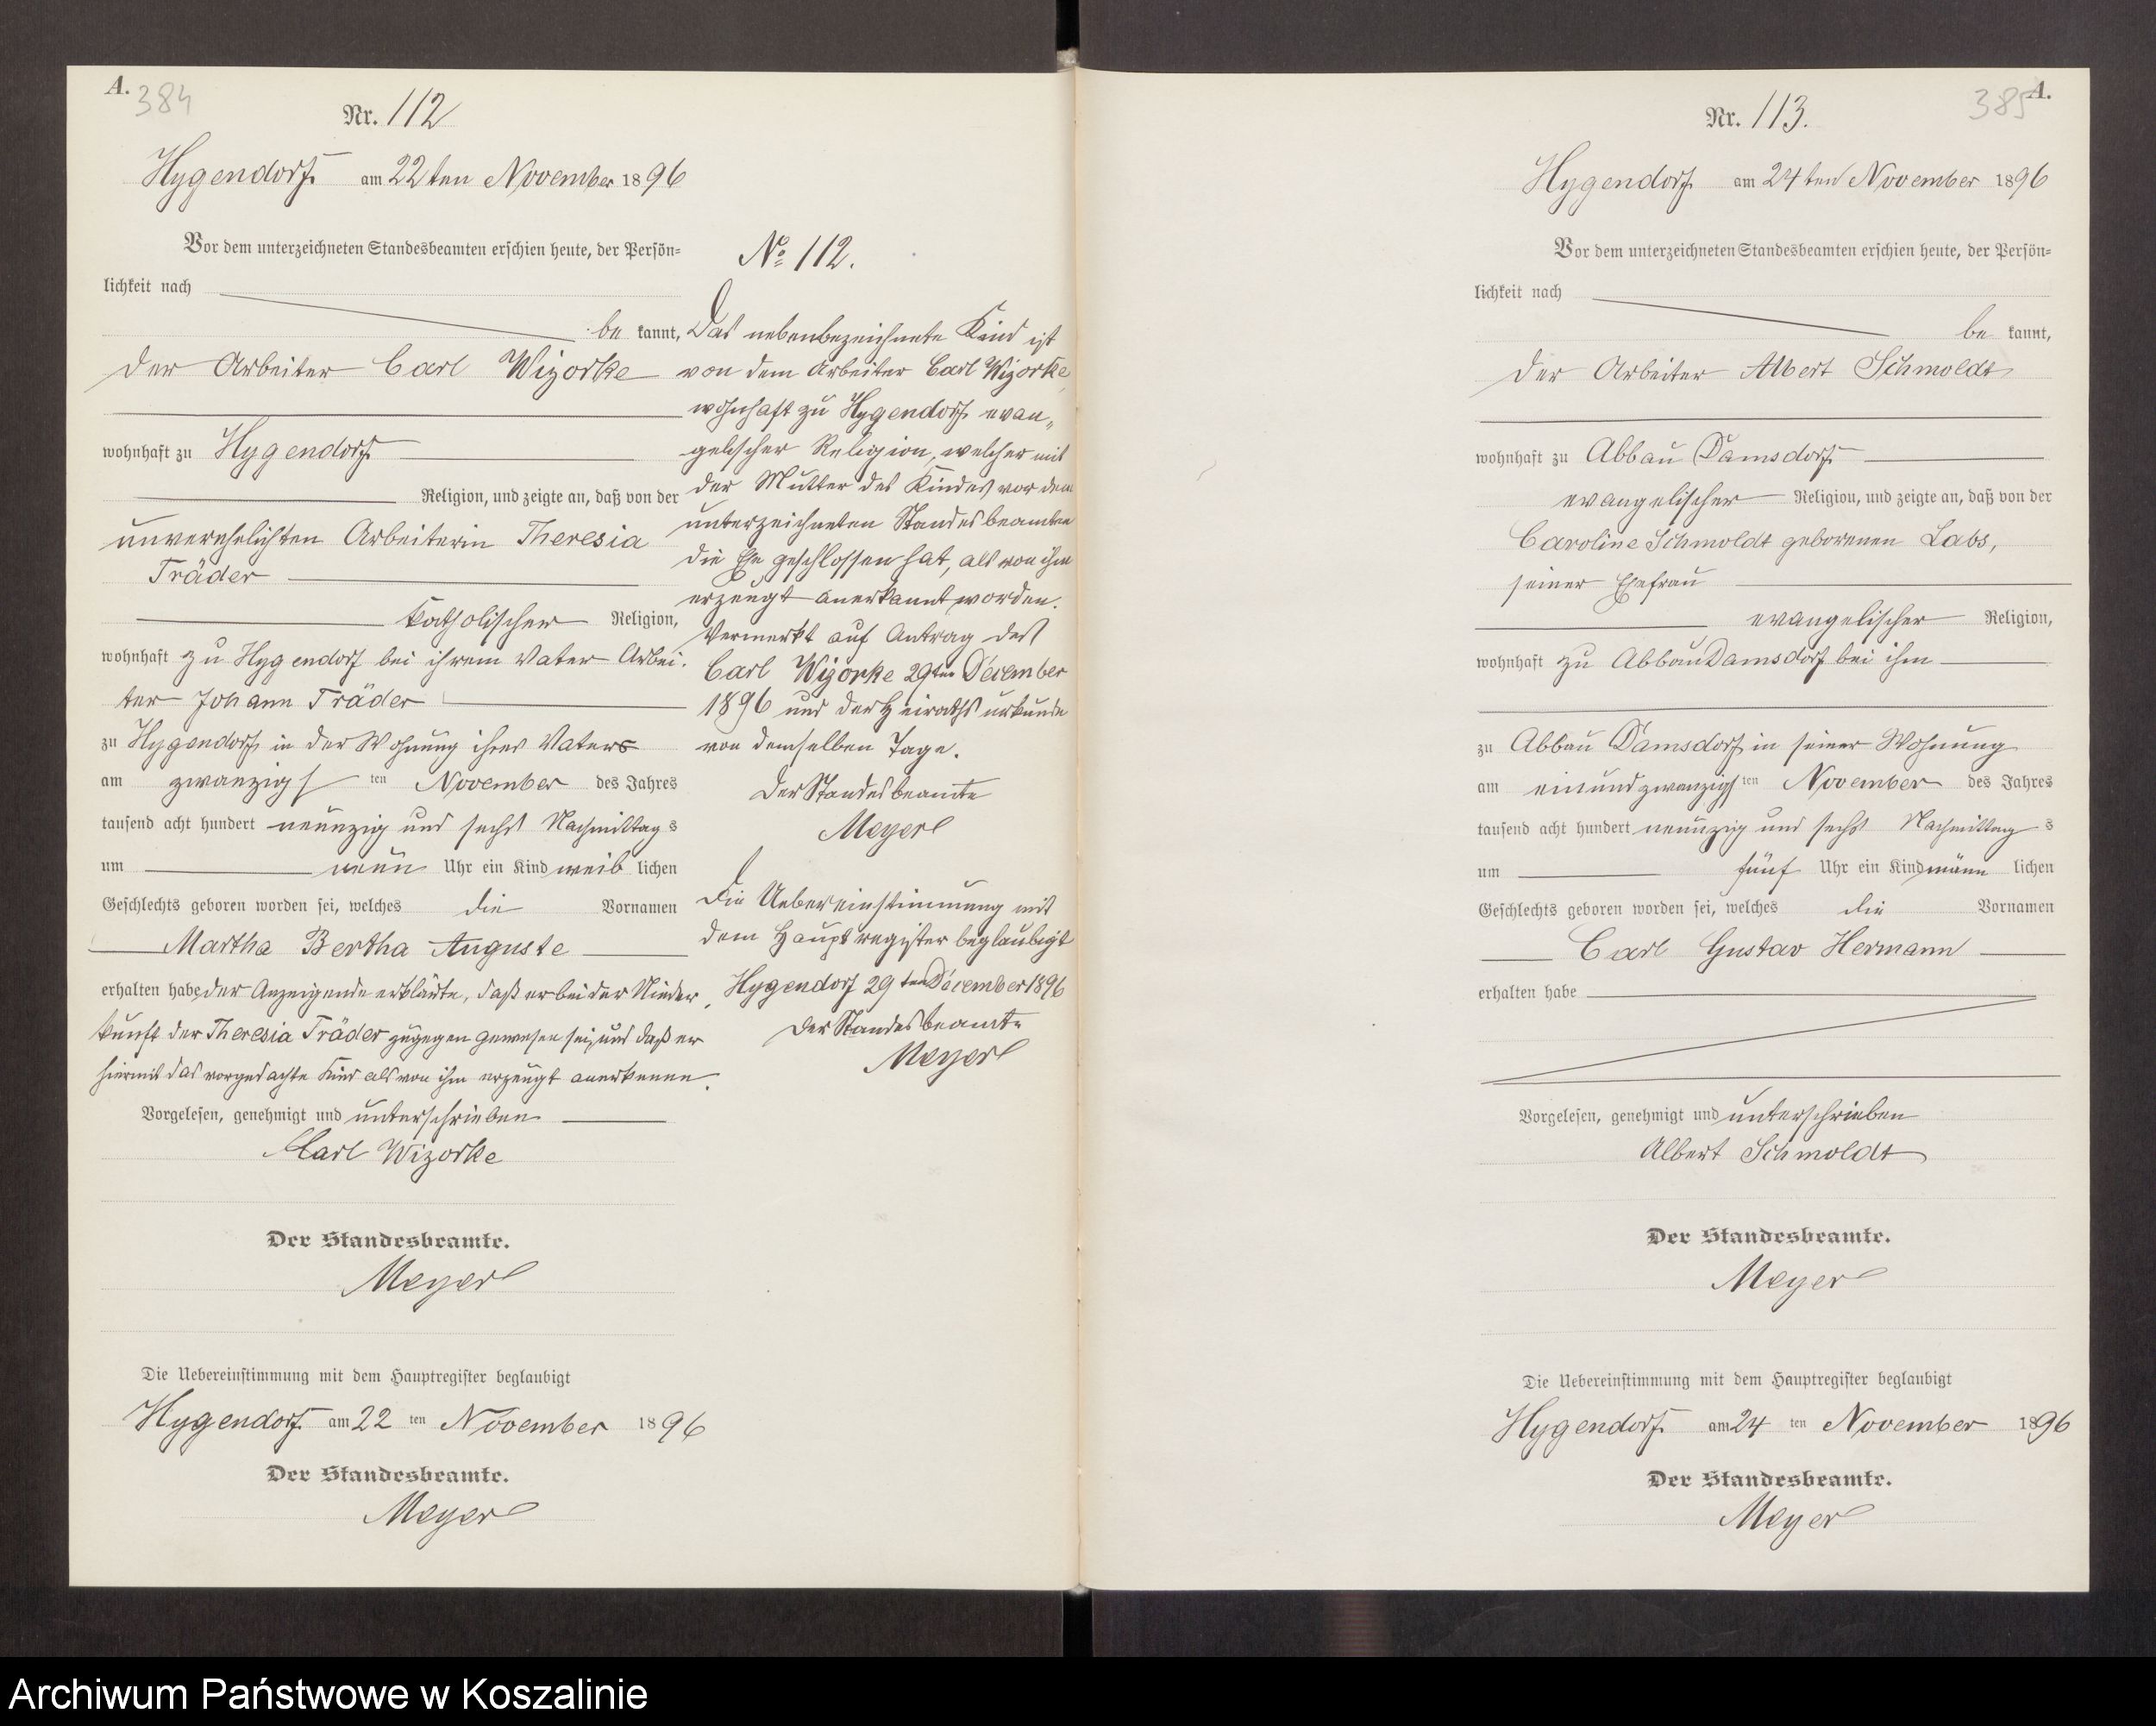 A.
384
Nr. 112
Hygendorf am 22ten November 1896
Vor dem unterzeichneten Standesbeamten erschien heute, der Persön-
lichkeit nach
be kannt,
der Arbeiter Carl Wizorke
wohnhaft zu Hygendorf
Religion, und zeigte an, daß von der
unverehelichten Arbeiterin Theresia
Träder
katholischer Religion,
wohnhaft zu Hygendorf bei ihrem Vater Arbei-
ter Johann Träder
zu Hygendorf in der Wohnung ihres Vaters
am zwanzigsten November des Jahres
tausend acht hundert neunzig und sechs Nachmittags
um neun Uhr ein Kind weiblichen
Geschlechts geboren worden sei, welches die Vornamen
Martha Bertha Auguste
erhalten habe, der Anzeigende erklärte, daß er bei der Nieder
kunft der Theresia Träder zugegen gewesen sei, und daß er
hiermit das vorgedachte Kind als von ihm erzeugt anerkenne.
Vorgelesen, genehmigt und unterschrieben
Carl Wizorke
Der Standesbeamte.
Meyer
Die Uebereinstimmung mit dem Hauptregister beglaubigt
Hygendorf am 22 ten November 1896
Der Standesbeamte.
Meyer
No 112.
Das nebenbezeichnete Kind ist
von dem Arbeiter Carl Wizorke,
wohnhaft zu Hygendorf evan-
gelischer Religion, welcher mit
der Mutter des Kindes vor dem
unterzeichneten Standesbeamten
die Ehe geschlossen hat, als von ihm
erzeugt anerkannt worden.
Vermerkt auf Antrag des
Carl Wizorke 29ten December
1896 und der Heirathsurkunde
von demselben Tage.
Der Standesbeamte
Meyer
Die Uebereinstimmung mit
dem Hauptregister beglaubigt
Hygendorf 29 ten December 1896
Der Standesbeamte
Meyer
385
A.
Nr. 113.
Hygendorf am 24ten November 1896
Vor dem unterzeichneten Standesbeamten erschien heute, der Persön-
lichkeit nach
be kannt,
der Arbeiter Albert Schmoldt
wohnhaft zu Abbau Damsdorf
evangelischer Religion, und zeigte an, daß von der
Caroline Schmoldt geborenen Labs,
seiner Ehefrau
evangelischer Religion,
wohnhaft zu Abbau Damsdorf bei ihm
zu Abbau Damsdorf in seiner Wohnung
am einundzwanzigsten November des Jahres
tausend acht hundert neunzig und sechs Nachmittags
um fünf Uhr ein Kind männlichen
Geschlechts geboren worden sei, welches die Vornamen
Carl Gustav Hermann
erhalten habe
Vorgelesen, genehmigt und unterschrieben
Albert Schmoldt
Der Standesbeamte.
Meyer
Die Uebereinstimmung mit dem Hauptregister beglaubigt
Hygendorf am 24 ten November 1896
Der Standesbeamte.
Meyer
Archiwum Państwowe w Koszalinie